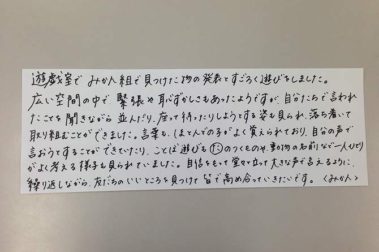 遊戯室で みかん組で見つけた物の発表とすごろく遊びをしました。
広い空間の中で 緊張や恥ずかしさもあったようですが、自分たちで言われ
たことを聞きながら 並んだり、座って待ったりしようとする姿も見られ、落ち着いて
取り組むことができました。言葉も、ほとんどの子がよく覚えられており、自分の声で
言おうとすることができていたり、ことば遊びも ㋟のつくものや、動物の名前など一人ひとり
がよく考える様子も見られていました。自信をもって堂々と立って大きな声で言えるように、
繰り返しながら、友だちのいいところを見つけて 皆で高め合っていきたいです。 〈みかん〉